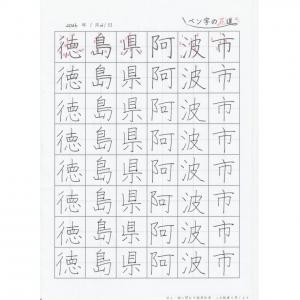 2026年1月21日
ペン字の花道
徳島県阿波市
徳島県阿波市
徳島県阿波市
徳島県阿波市
徳島県阿波市
徳島県阿波市
徳島県阿波市
徳島県阿波市